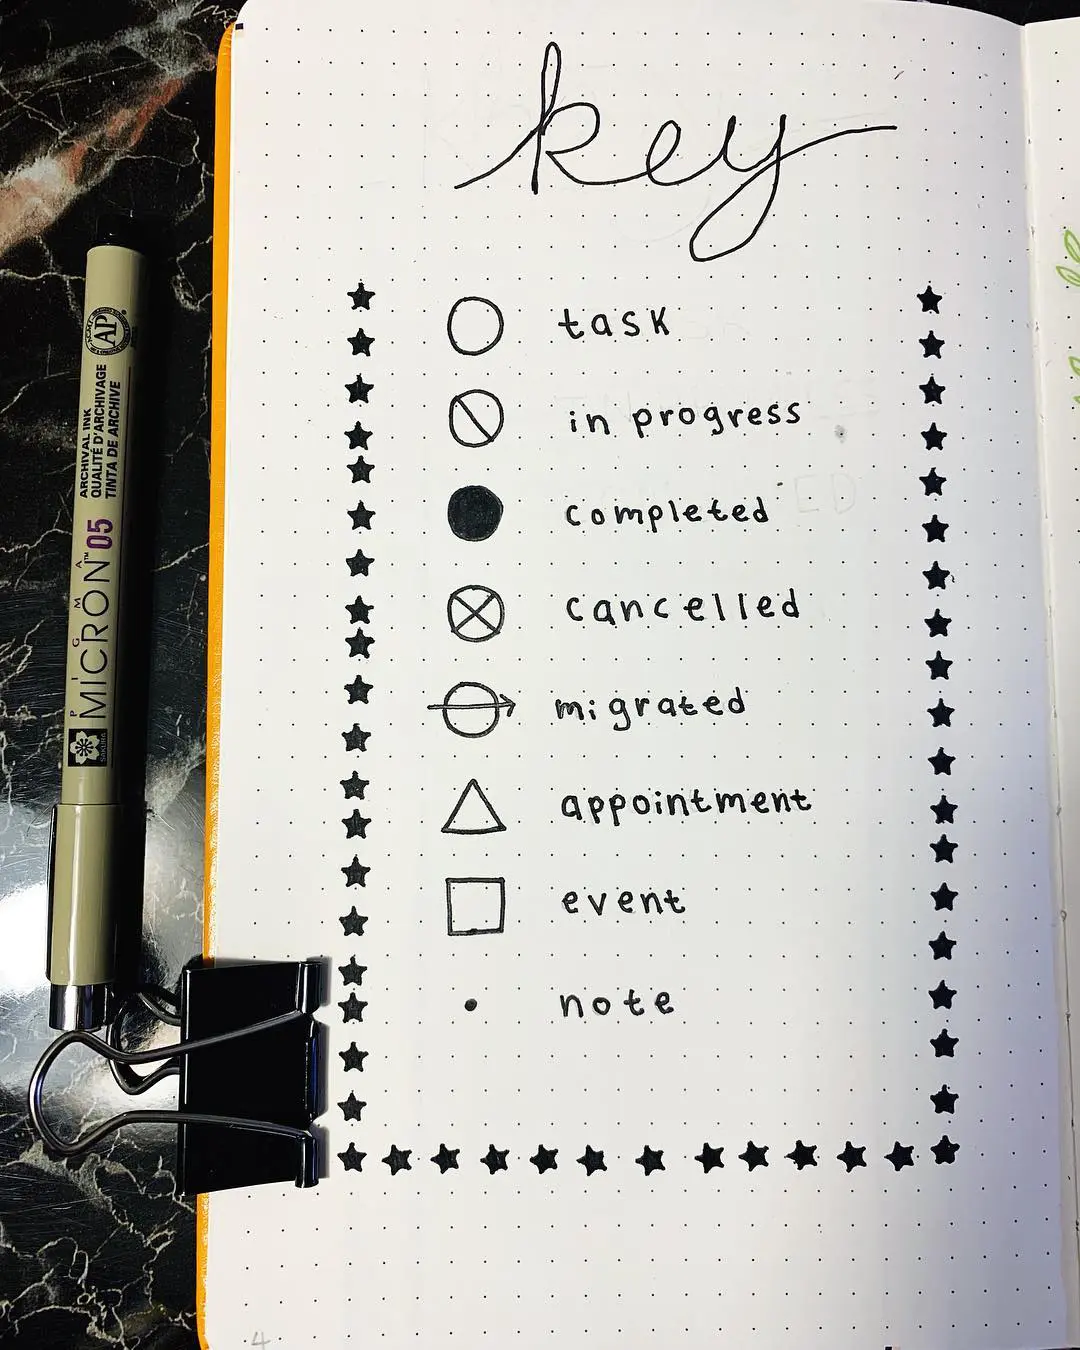 key
task
in progress
completed
cancelled
migrated
appointment
event
note
4
ARCHIVAL INK
QUALITÉ D'ARCHIVAGE
TINTA DE ARCHIVE
PIGMA
MICRON™ 05
AP
SAKURA